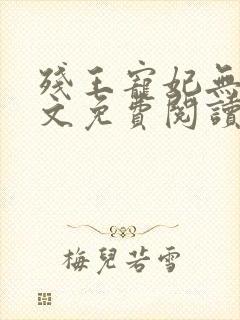 殘王寵妃無
文免費閱讀
梅兒若雪